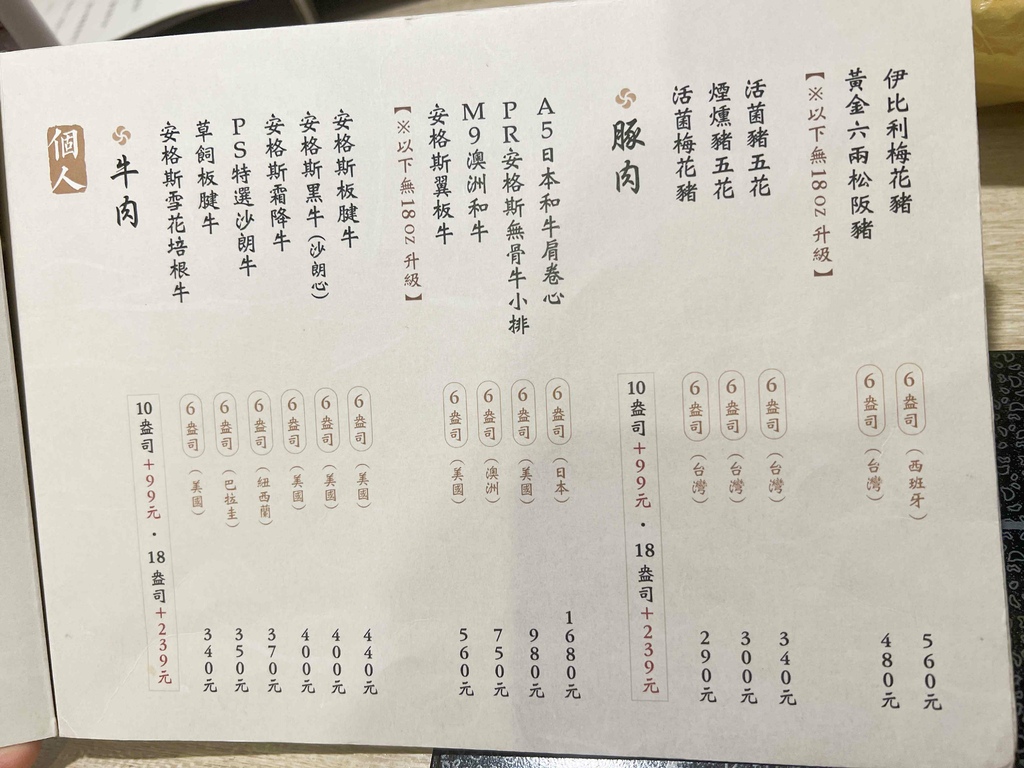 個人
牛肉
10盎司+99元・18盎司+239元
安格斯雪花培根牛 6盎司 (美國) 340元
草飼板腱牛 6盎司 (巴拉圭) 350元
PS特選沙朗牛 6盎司 (紐西蘭) 370元
安格斯霜降牛 6盎司 (美國) 400元
安格斯黑牛(沙朗心) 6盎司 (美國) 400元
安格斯板腱牛 6盎司 (美國) 440元
【※以下無18oz升級】
安格斯翼板牛 6盎司 (美國) 560元
M9澳洲和牛 6盎司 (澳洲) 750元
PR安格斯無骨牛小排 6盎司 (美國) 980元
A5日本和牛肩卷心 6盎司 (日本) 1680元
豚肉
10盎司+99元・18盎司+239元
活菌梅花豬 6盎司 (台灣) 290元
煙燻豬五花 6盎司 (台灣) 300元
活菌豬五花 6盎司 (台灣) 340元
【※以下無18oz升級】
黃金六兩松阪豬 6盎司 (台灣) 480元
伊比利梅花豬 6盎司 (西班牙) 560元